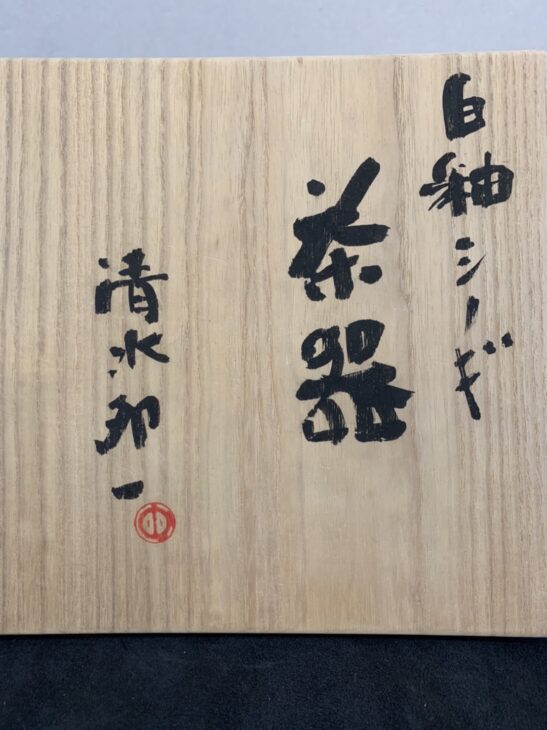 白釉シノギ
茶器
清水卯一